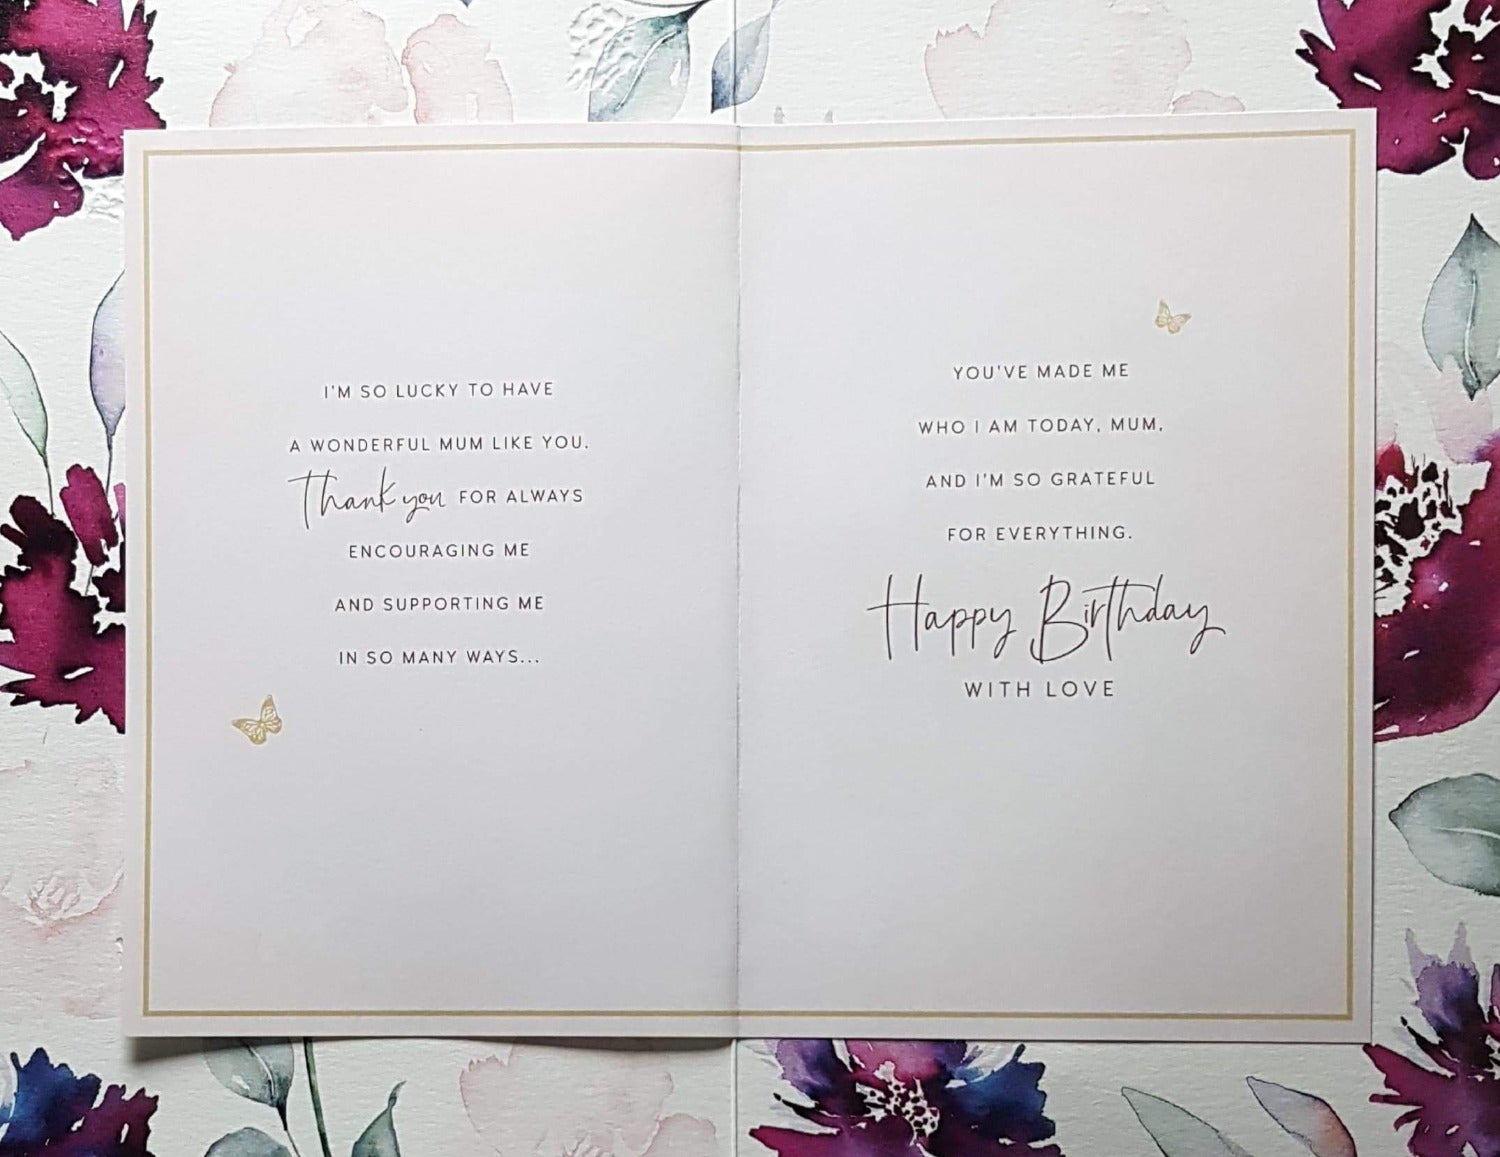 I'M SO LUCKY TO HAVE
A WONDERFUL MUM LIKE YOU.
Thank you FOR ALWAYS
ENCOURAGING ME
AND SUPPORTING ME
IN SO MANY WAYS...
YOU'VE MADE ME
WHO I AM TODAY, MUM,
AND I'M SO GRATEFUL
FOR EVERYTHING.
Happy Birthday
WITH LOVE